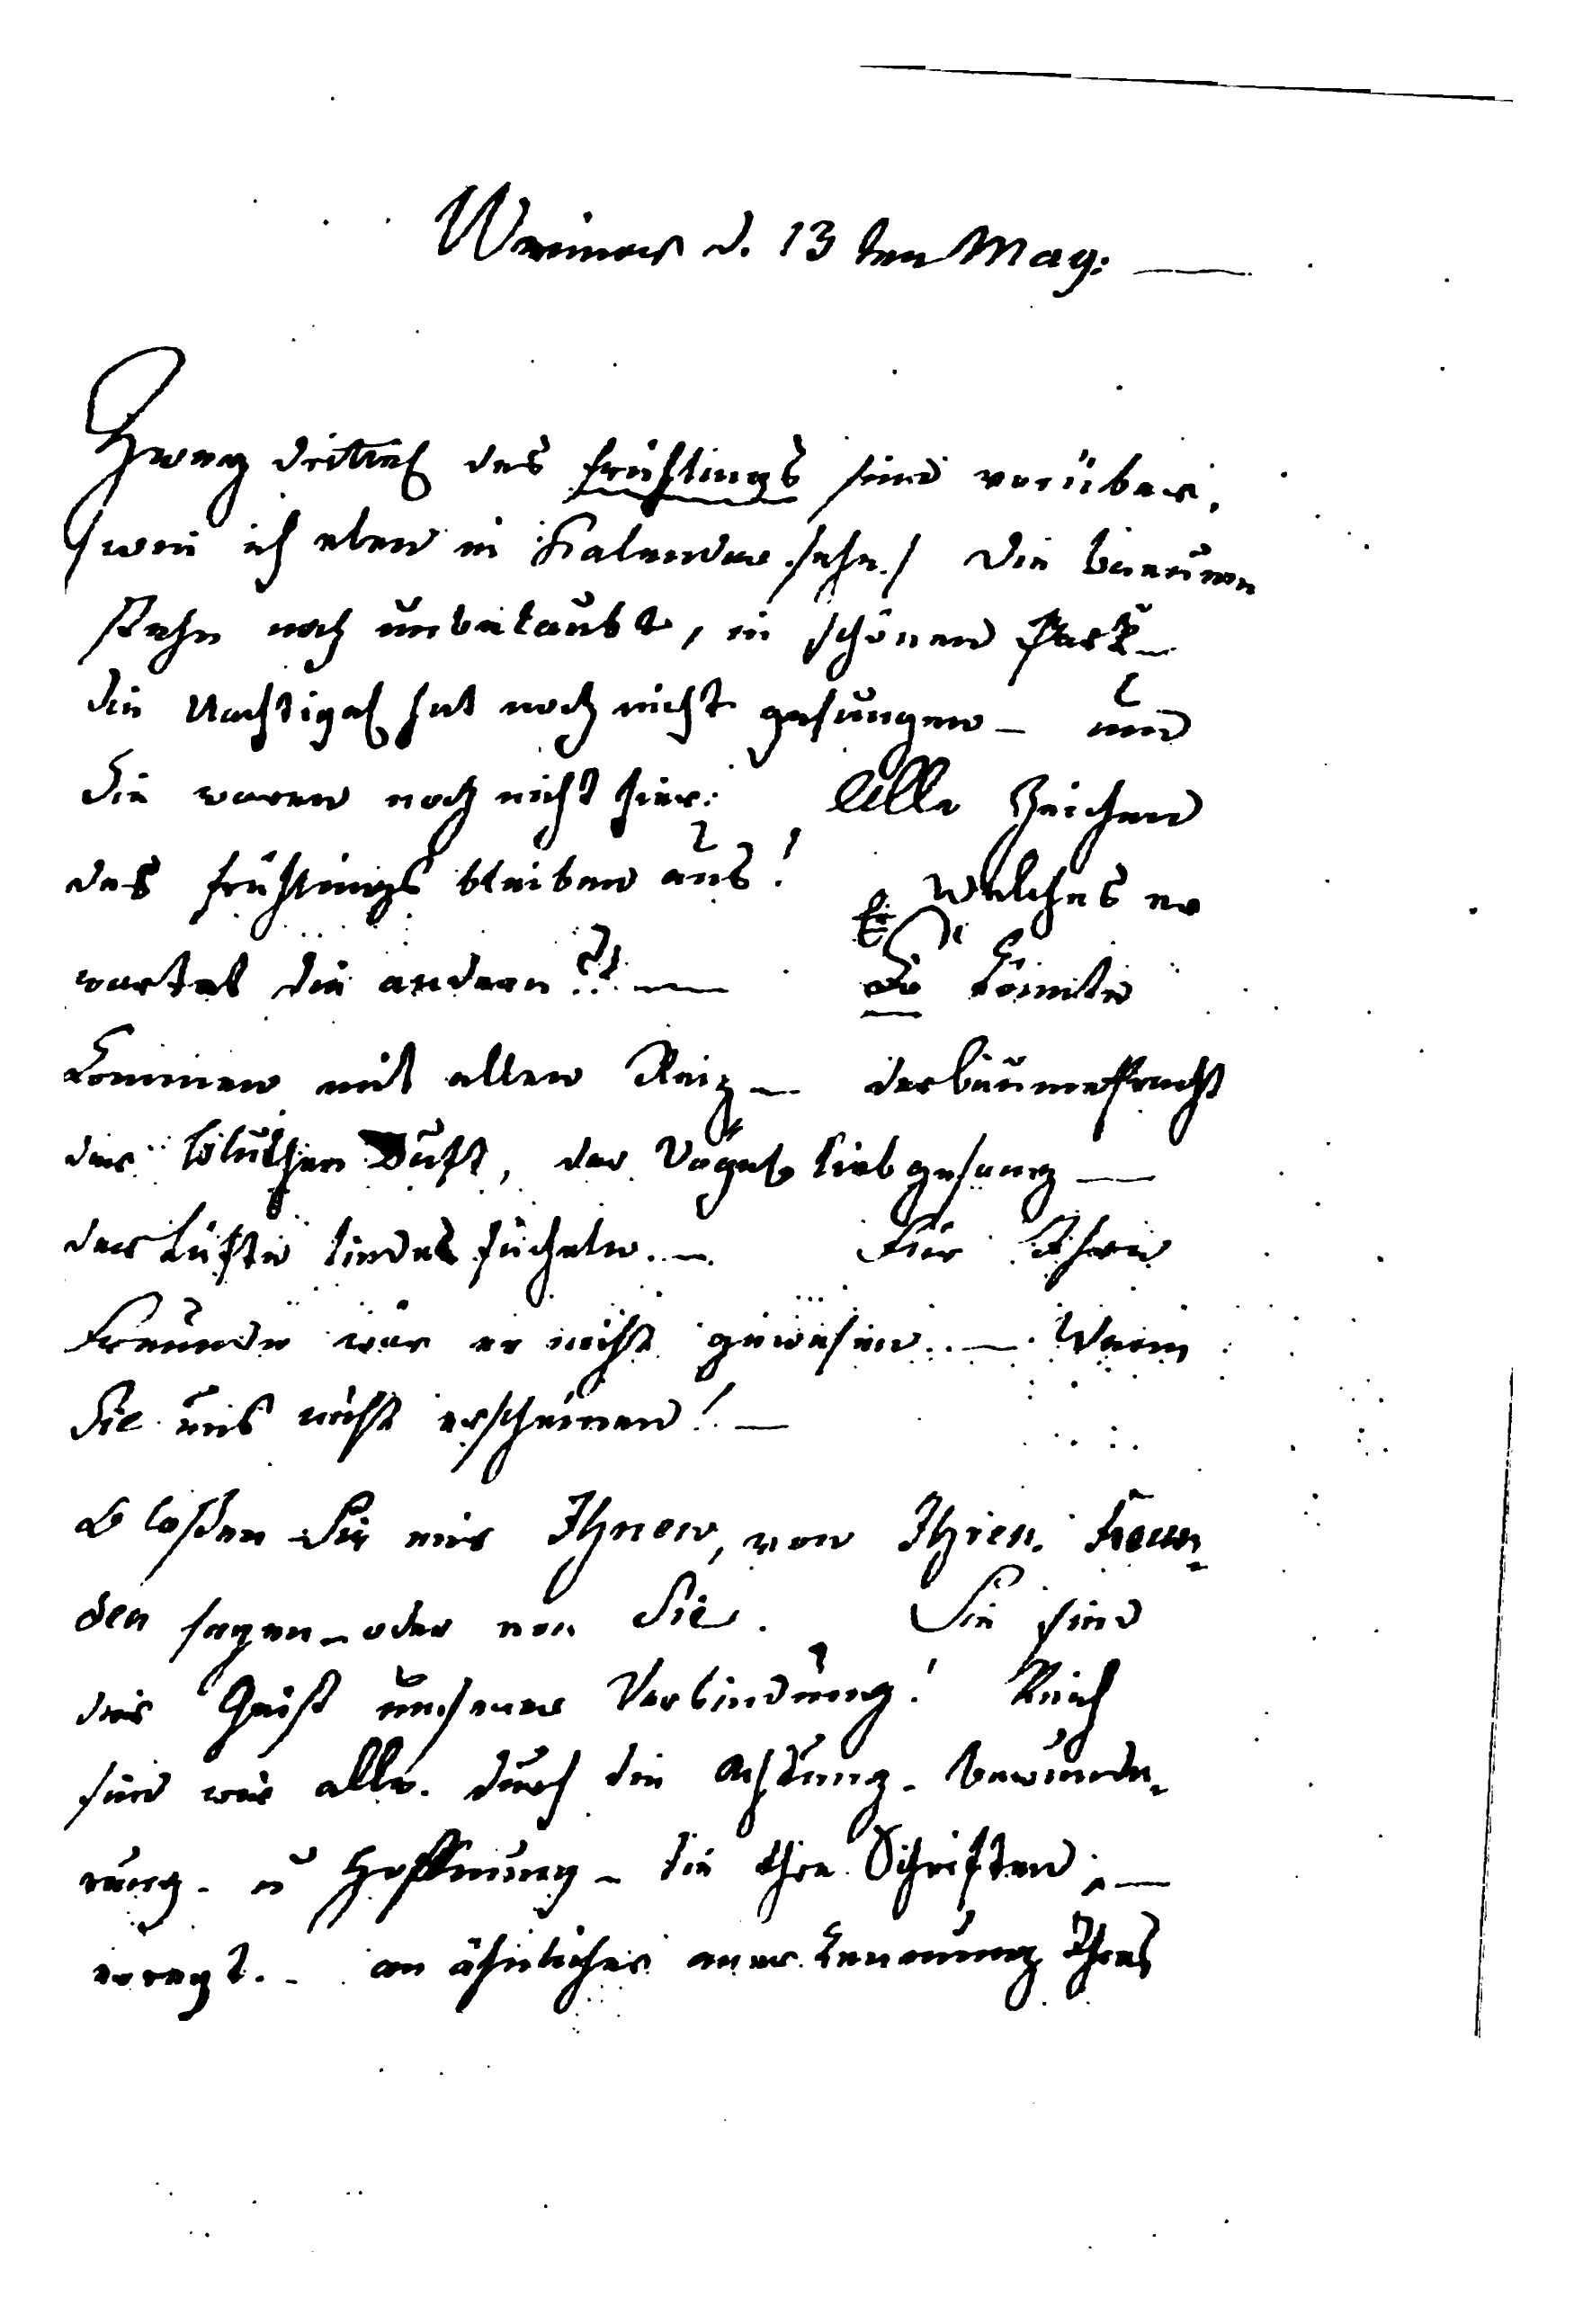 Weimar d. 13ten May: —
Zwey drittel des frühlings sind vorüber,
/wen ich eben in Kalender sehe./ die bäeume
stehn noch unbelaubt, in schönen Park —
die Nachtigal hat noch nicht gesungen — und
Sie waren noch nicht hier: Alle Zeichen
des frühlings bleiben aus! Welches er
wartet die andern?! — Er könte
kommen mit allen Reiz — der bäume Pracht
der blüthen Duft, der Vögel lieb gesang —
der Lüfte lindes fächeln. — Für Ihre
Freunde wär er nicht gewesen. — Wenn
Sie uns nicht erscheinen! —
bloßen Sie mir Ihnen, von Ihren Freun-
den sagen — oder von Sie. Sie sind
der Geist unserer Verbindung! Reich
sind wir alle. durch die Achtung — bewunde-
rung — u Hoffnung — die Ihre Schriften, —
erregt. — an ähnlicher aner kennung Ihres